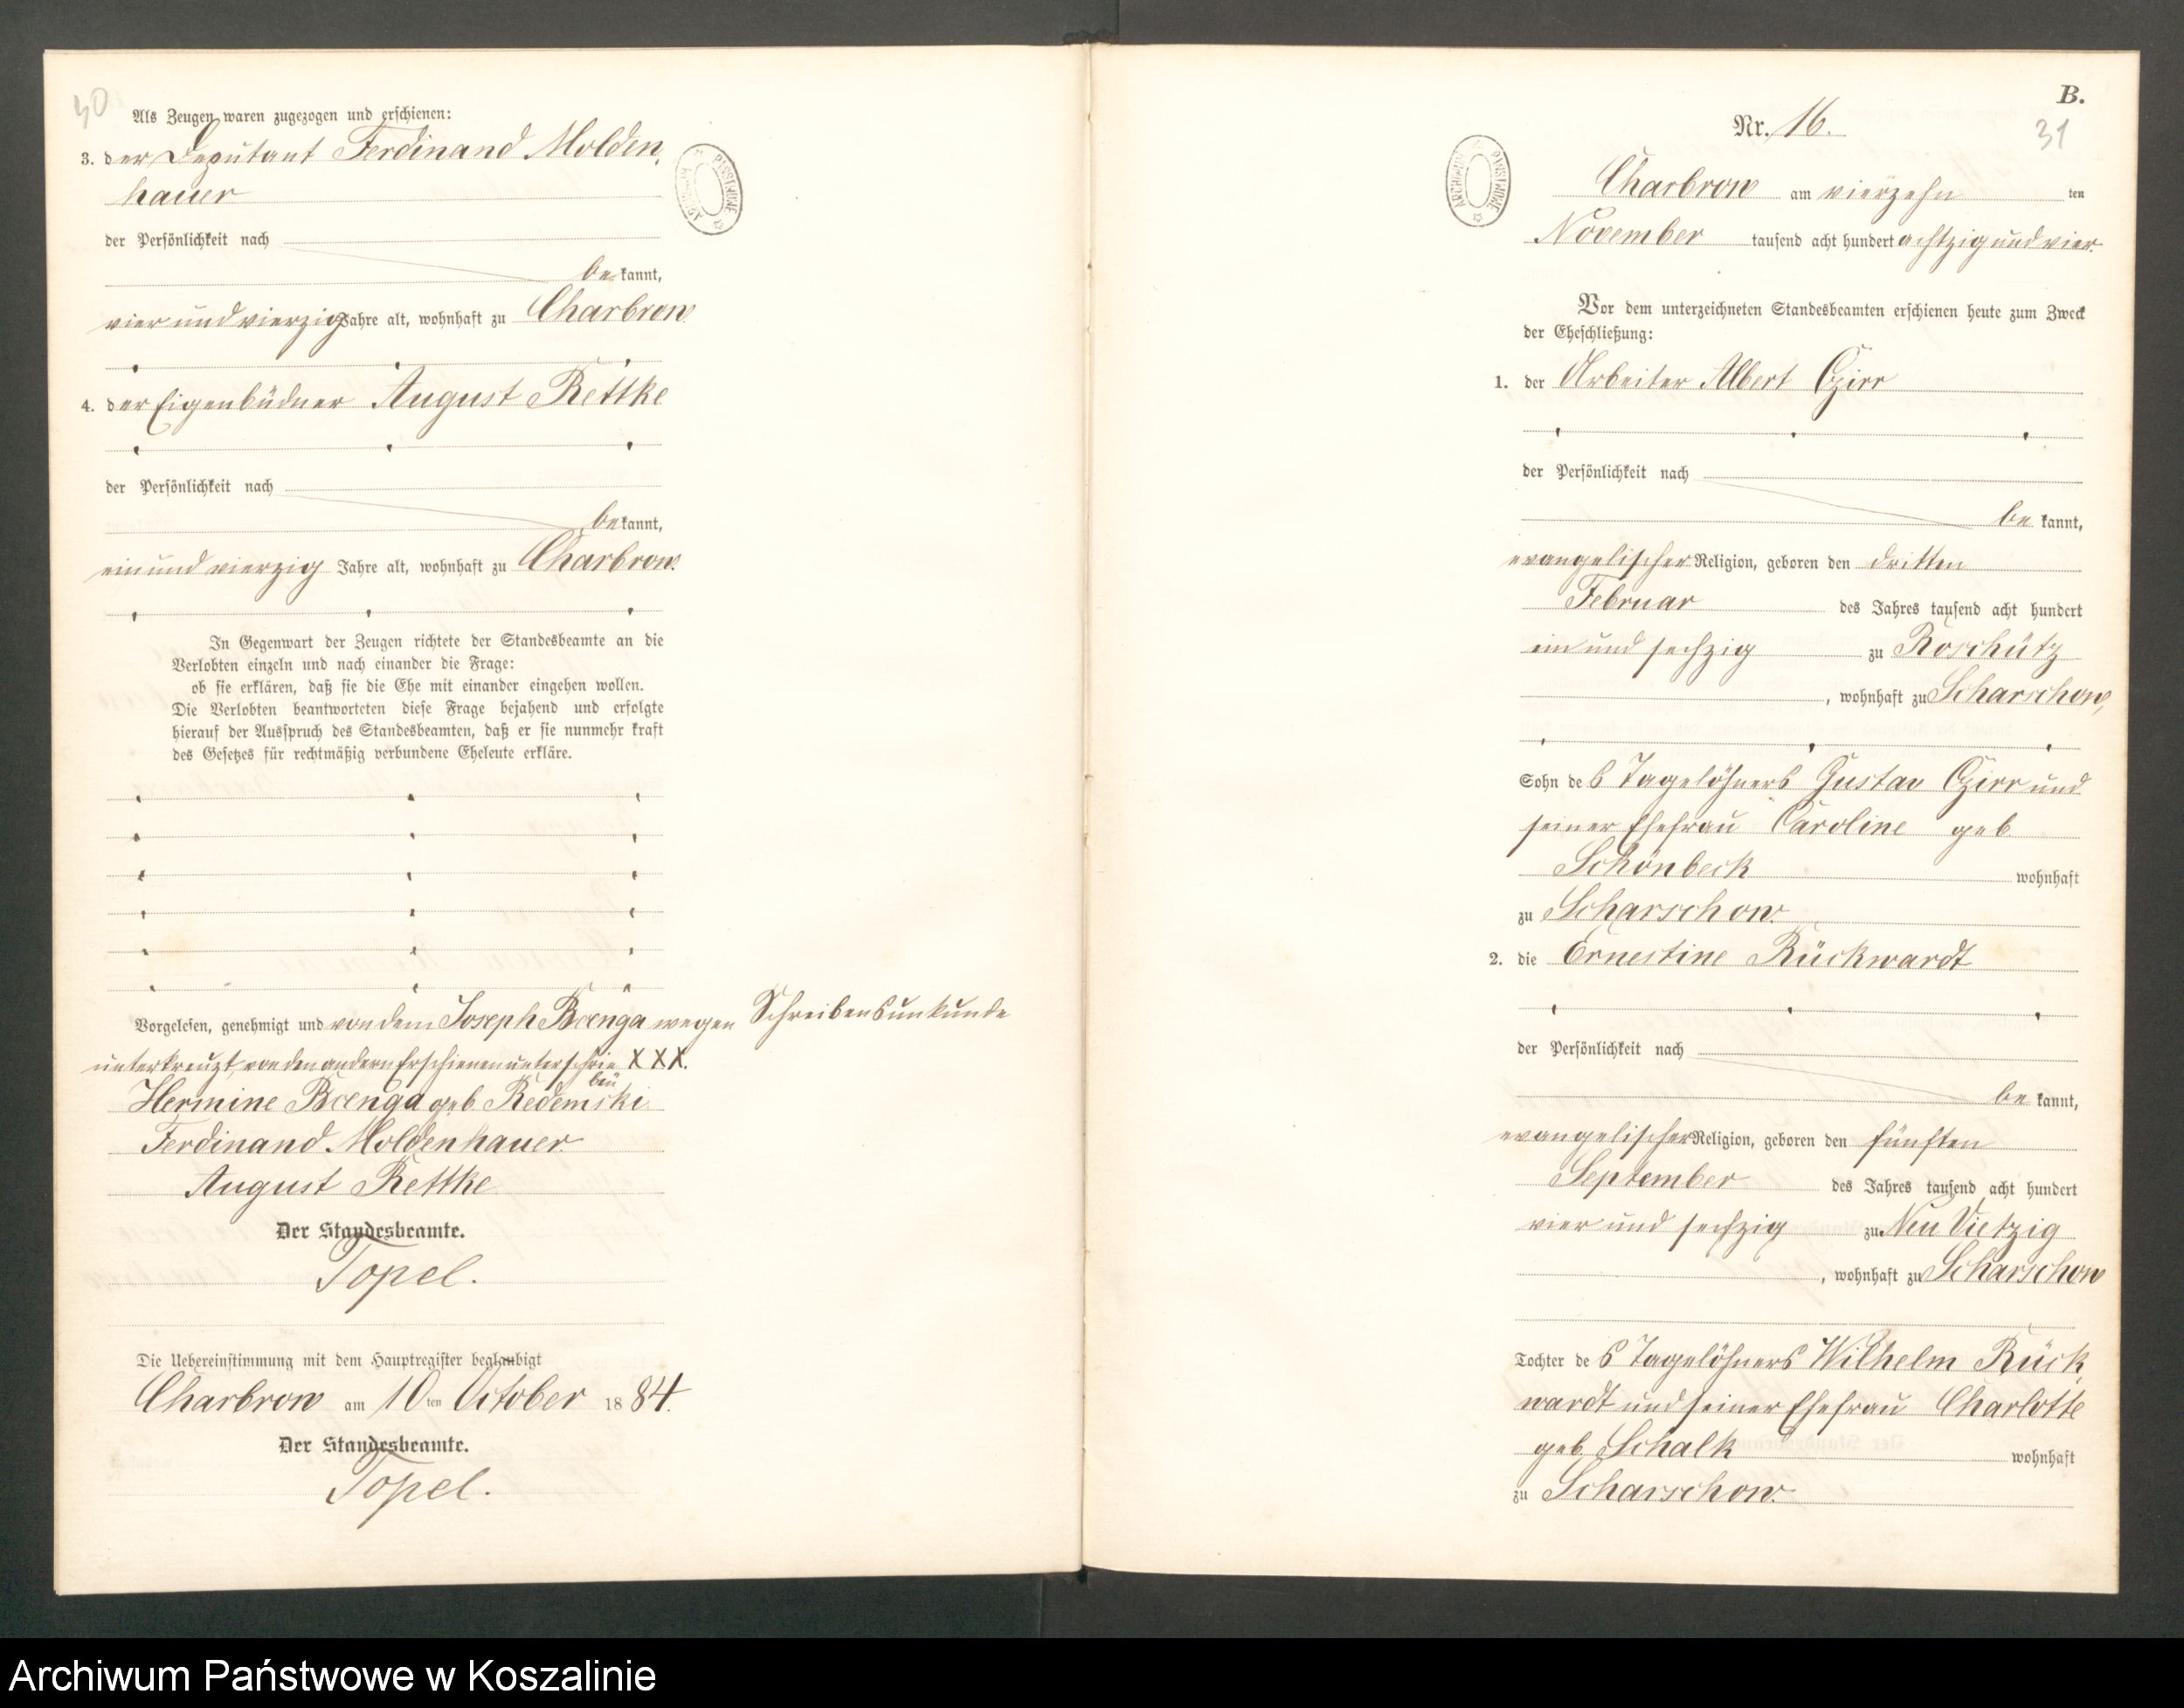 40
Als Zeugen waren zugezogen und erschienen:
3. der Deputant Ferdinand Molden-
hauer
der Persönlichkeit nach
be kannt,
vier und vierzig Jahre alt, wohnhaft zu Charbrow
4. der Eigenbüdner August Rettke
der Persönlichkeit nach
be kannt,
ein und vierzig Jahre alt, wohnhaft zu Charbrow.
In Gegenwart der Zeugen richtete der Standesbeamte an die
Verlobten einzeln und nach einander die Frage:
ob sie erklären, daß sie die Ehe mit einander eingehen wollen.
Die Verlobten beantworteten diese Frage bejahend und erfolgte
hierauf der Ausspruch des Standesbeamten, daß er sie nunmehr kraft
des Gesetzes für rechtmäßig verbundene Eheleute erkläre.
Vorgelesen, genehmigt und von dem Joseph wegen Schreibensunkunde
unterkreuzt, von den andern Erschienen unterschrie XXX.
ben
Hermine geb. Redemski
Ferdinand Moldenhauer.
August Rettke
Der Standesbeamte.
Topel.
Die Uebereinstimmung mit dem Hauptregister beglaubigt
Charbrow am 10 ten October 18 84.
Der Standesbeamte.
Topel.
B.
Nr. 16.
31
ARCHIWUM PAŃSTWOWE
Charbrow am vierzehn ten
November tausend acht hundert achtzig und vier.
Vor dem unterzeichneten Standesbeamten erschienen heute zum Zweck
der Eheschließung:
1. der Arbeiter Albert Czirr
der Persönlichkeit nach
be kannt,
evangelischer Religion, geboren den dritten
Februar des Jahres tausend acht hundert
ein und sechzig zu Roschütz
, wohnhaft zu Scharschow,
Sohn des Tagelöhners Gustav Czirr und
seiner Ehefrau Caroline geb
Schönbeck wohnhaft
zu Scharschow.
2. die Ernestine Rückwardt
der Persönlichkeit nach
be kannt,
evangelischer Religion, geboren den fünften
September des Jahres tausend acht hundert
vier und sechzig zu Neu Vietzig
, wohnhaft zu Scharschow
Tochter des Tagelöhners Wilhelm Rück-
wardt und seiner Ehefrau Charlotte
geb. Schalk wohnhaft
zu Scharschow.
Archiwum Państwowe w Koszalinie